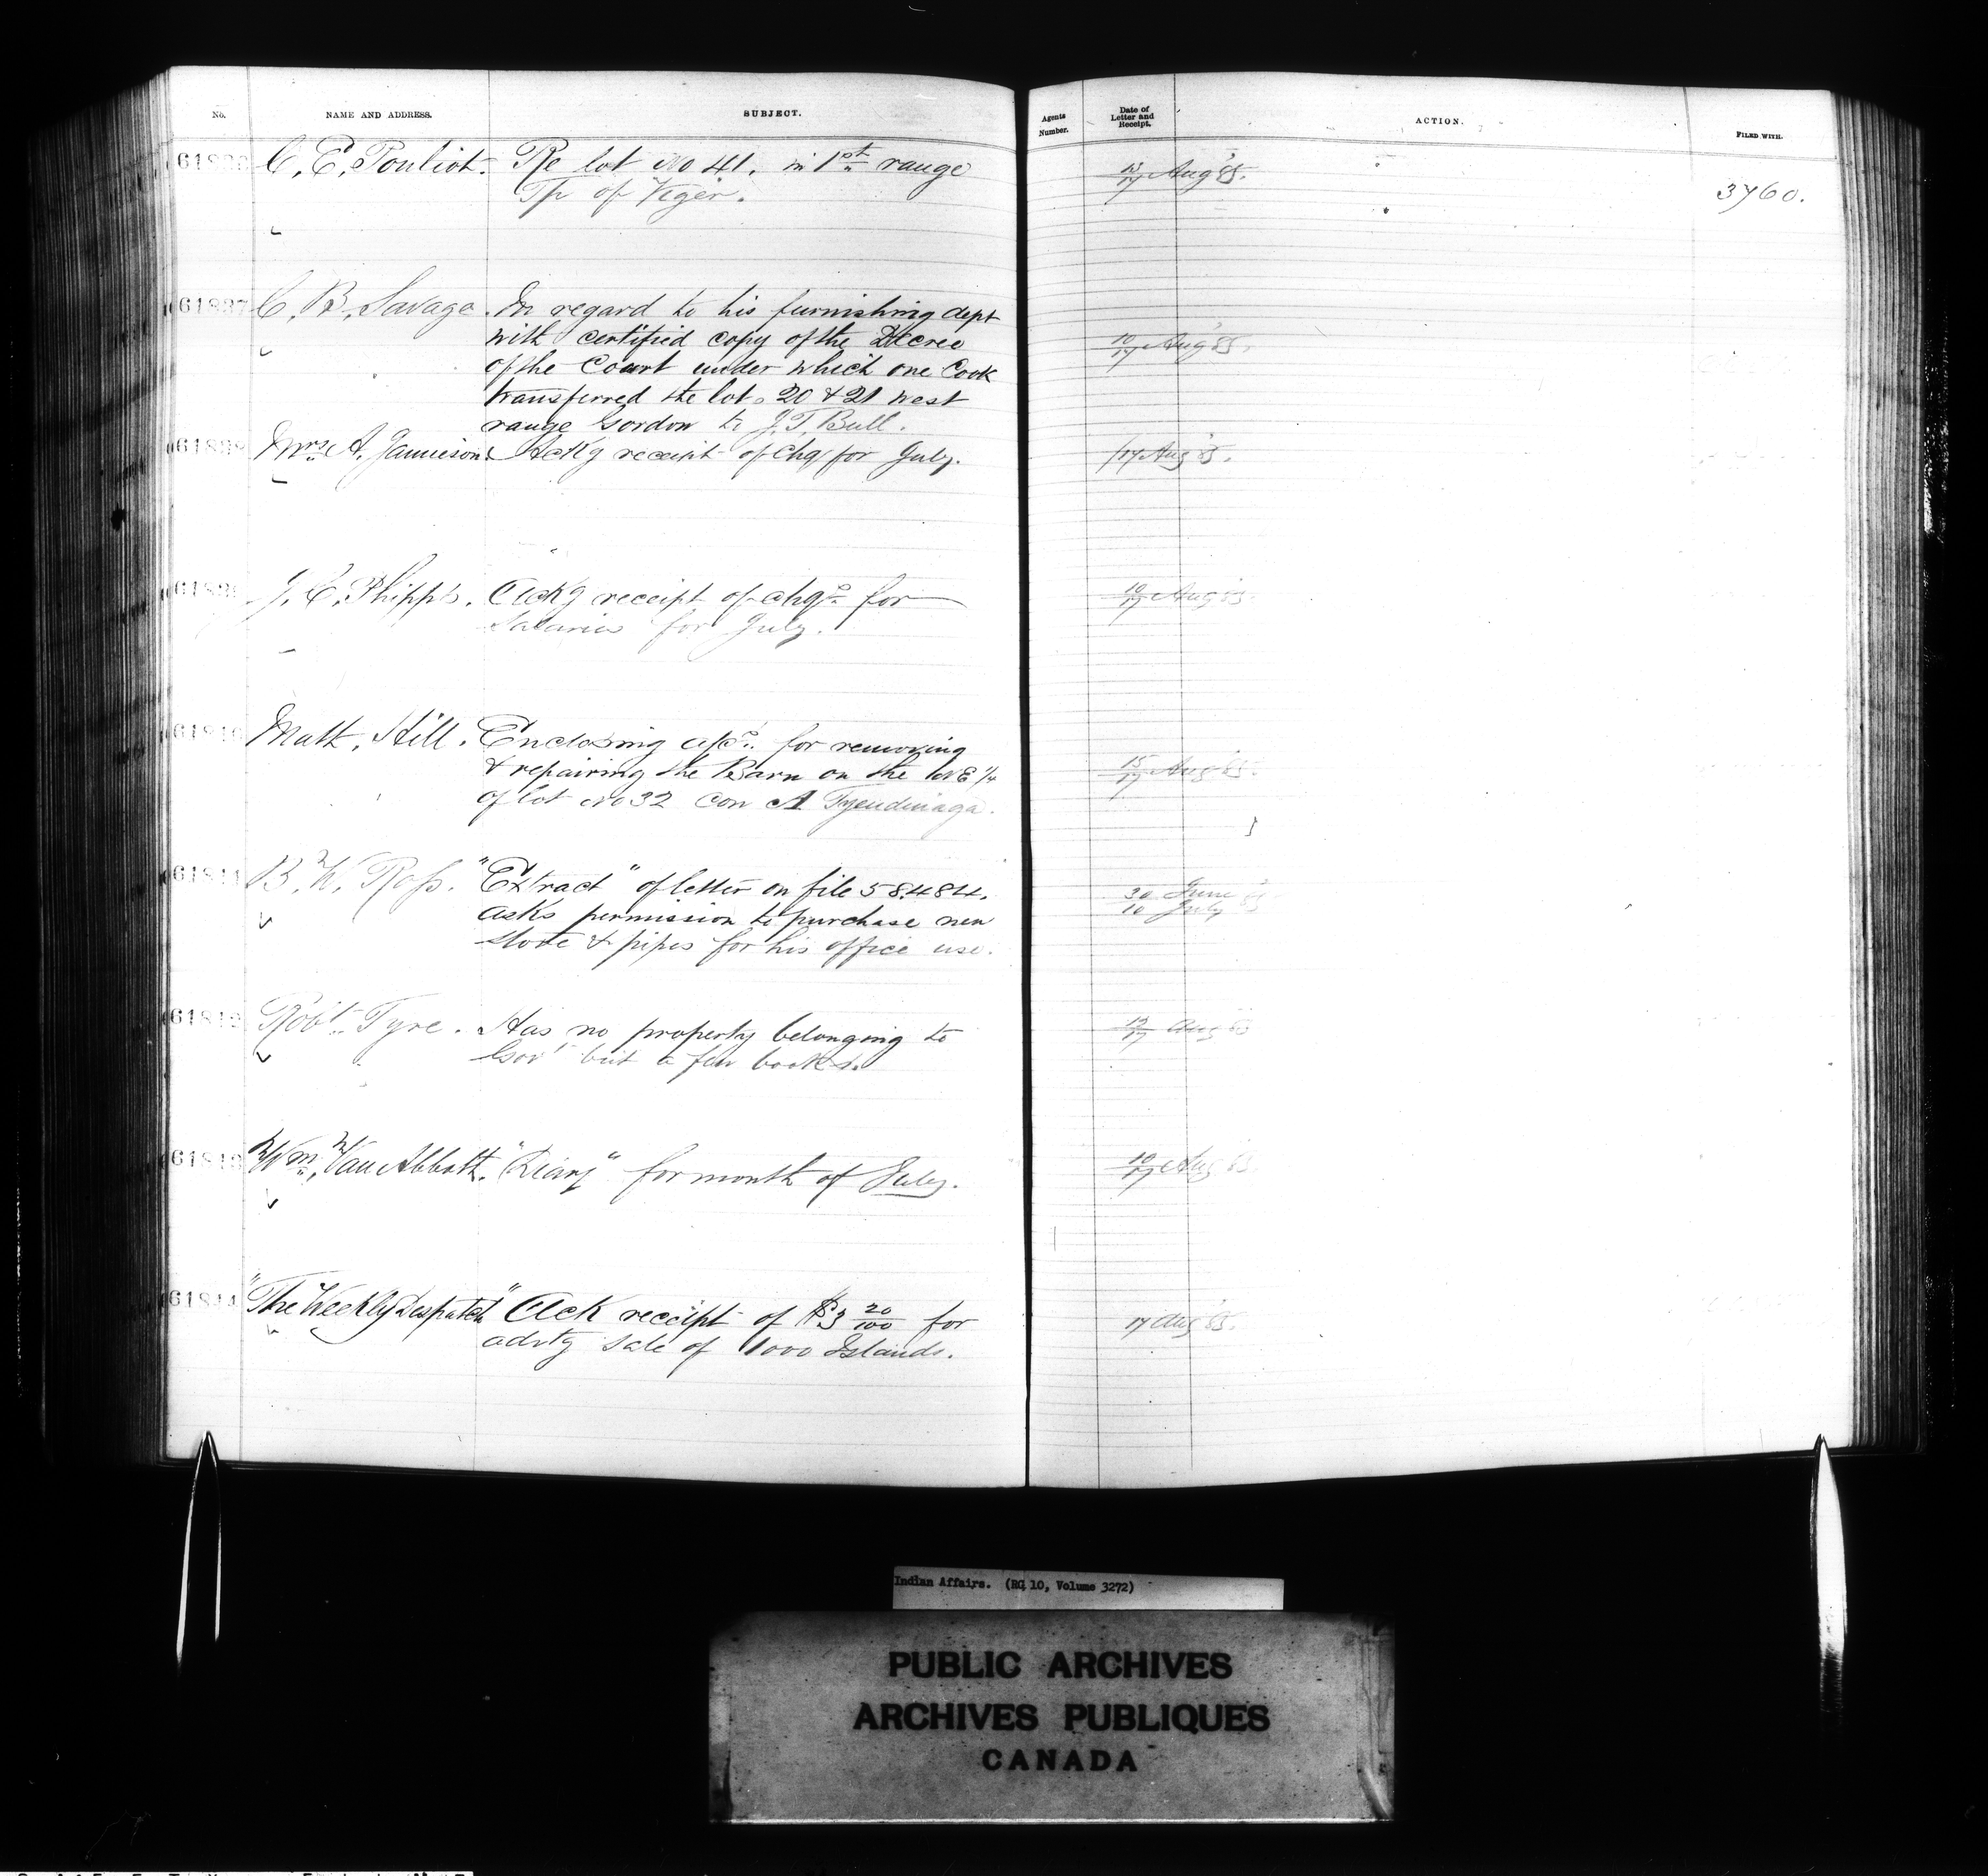 No.
NAME AND ADDRESS.
SUBJECT.
Agents
Number.
Date of
Letter and
Receipt.
ACTION.
FILED WITH.
C. E. Pouliot. Re lot No 41. in 1st range
Tp of Viger.
13/17 Aug '85.
3760.
61837 C. B. Savage. In regard to his furnishing dept
with certified copy of the Decree
of the Court under which one Cook
transferred the lots 20 & 21 West
range Gordon to J. T. Bull.
10/17 Aug '85.
61838 Mrs A. Jamieson. Ackg receipt of chq for July.
/17 Aug '85.
J. C. Phipps. Ackg receipt of chqs for
Salaries for July.
10/17 Aug 85.
Matt. Hill. Enclosing a/cs. for removing
& repairing the Barn on the NE 1/4
of lot No 32 Con A Tyendinaga.
15/17 Aug 85.
61841 B. W. Ross. "Extract" of letter on file 58484.
asks permission to purchase new
stove & pipes for his office use.
30 June
10 July 85
Robt. Tyre. Has no property belonging to
Govt but a few books.
Aug 85
Wm. Van Abbott. "Diary" for month of July.
10/17 Aug 85
61844 "The Weekly Despatch" Ack receipt of $3 20/100 for
advtg sale of 1000 Islands.
17 Aug 85.
Indian Affairs. (RG 10, Volume 3272)
PUBLIC ARCHIVES
ARCHIVES PUBLIQUES
CANADA